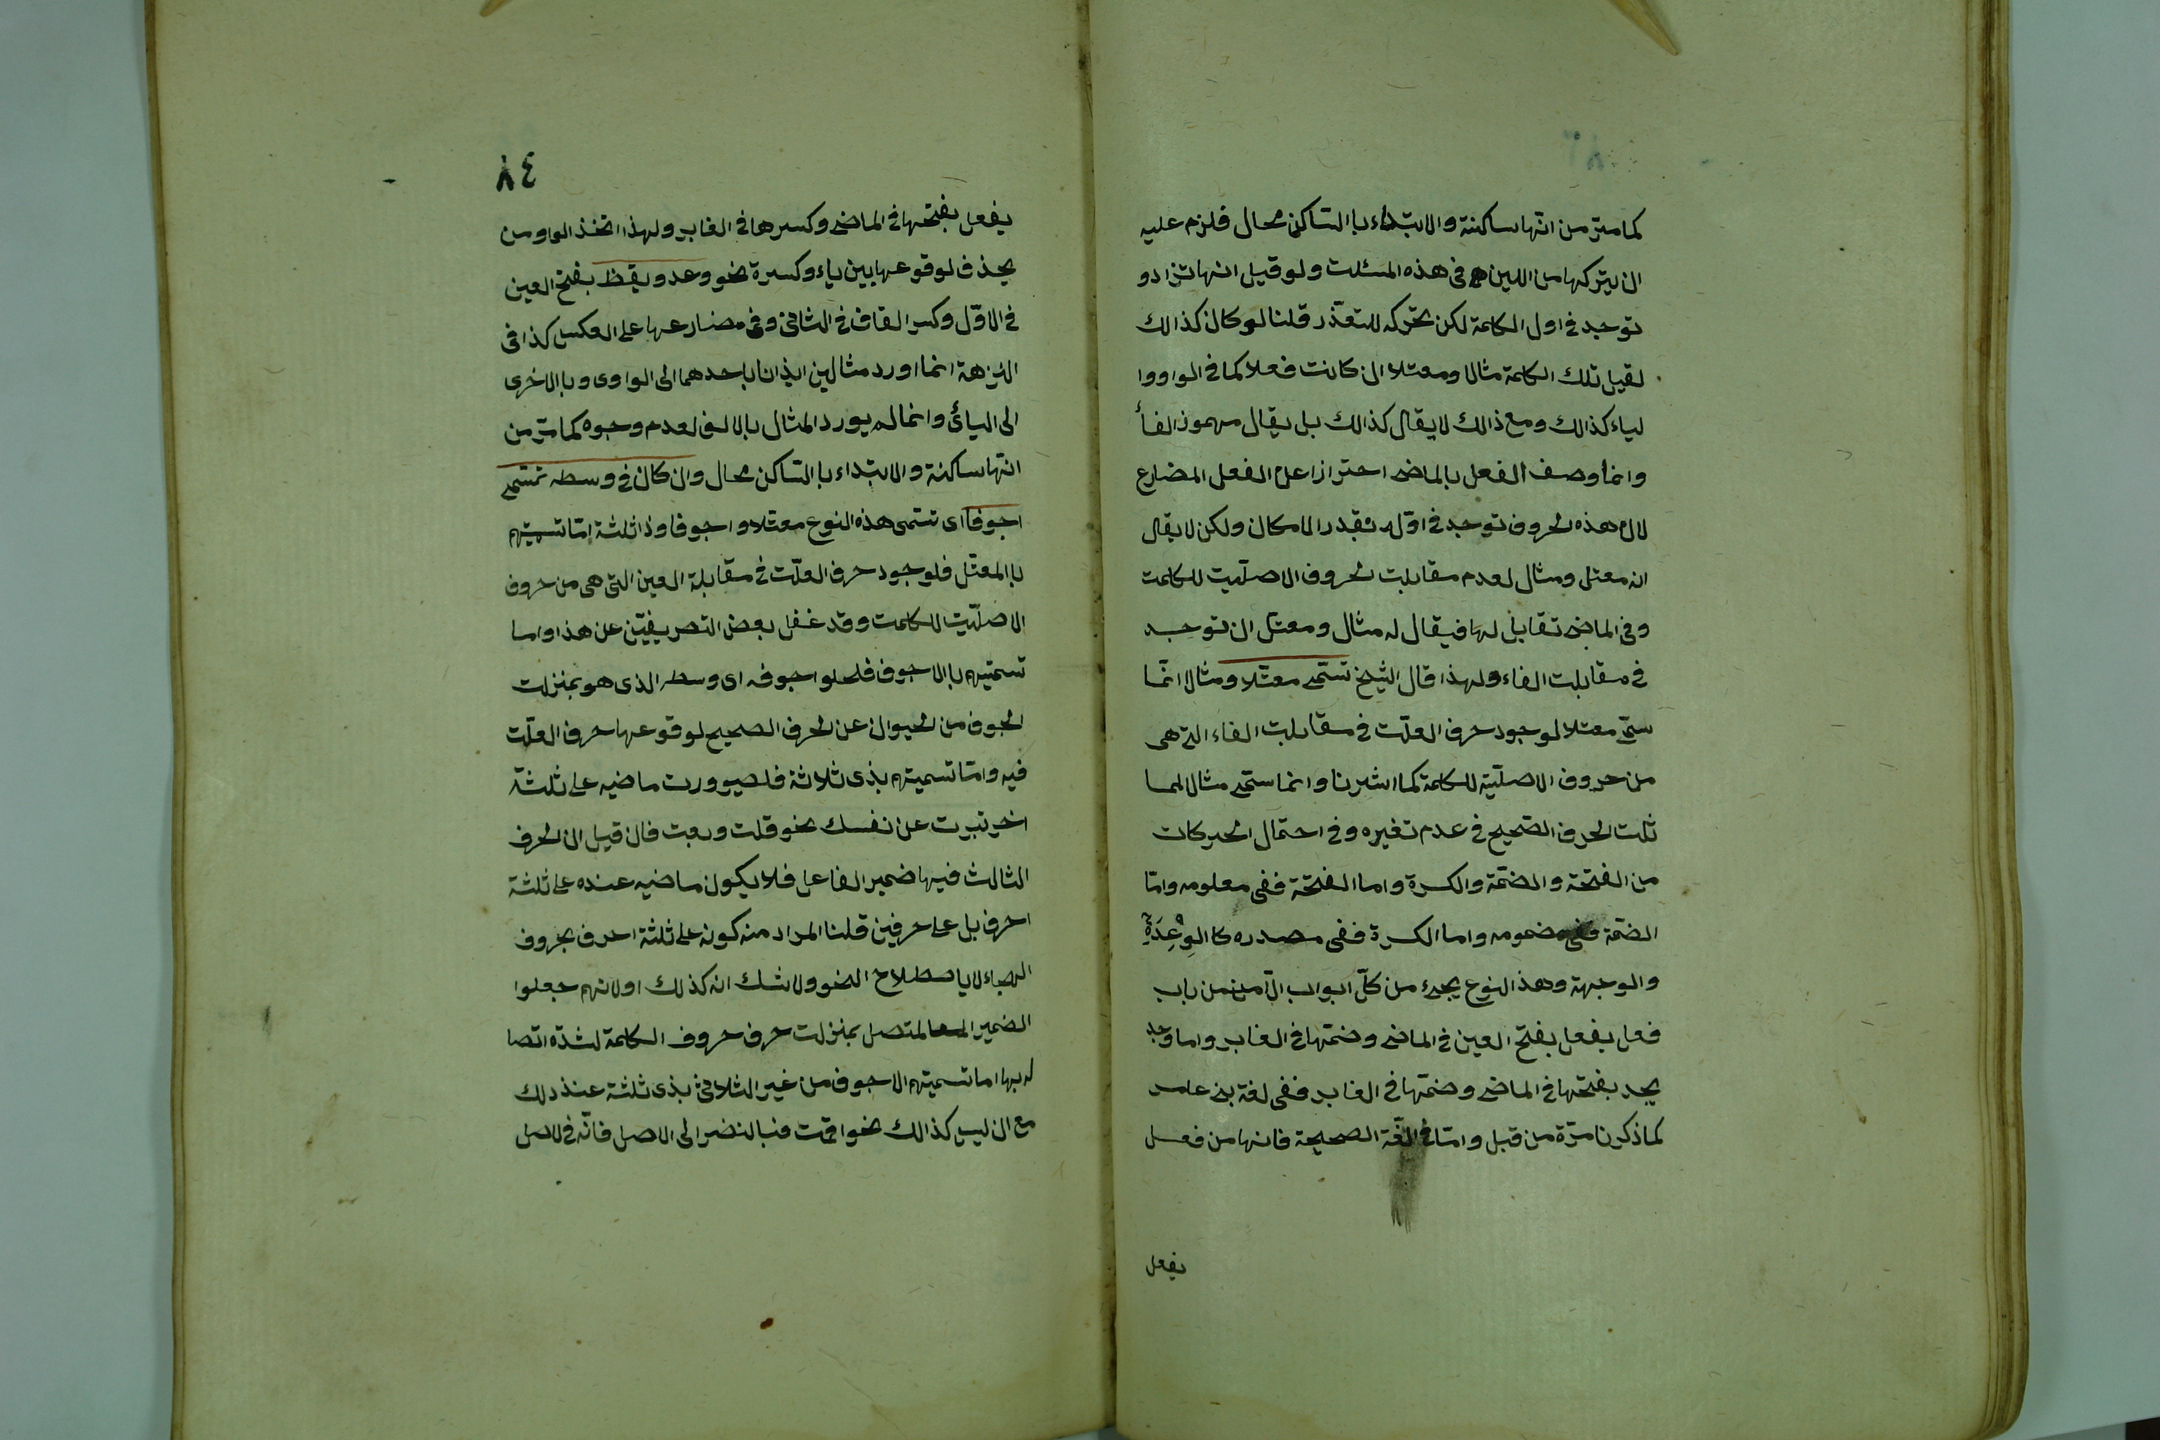 كما مرّ من انّها ساكنة والابتداء باالسّاكن محال فلزم عليه
ان يتركها من اللين فى هذه المسئلت ولو قيل انها تزادو
توجد فى اول الكلمة لكن تحرّكه للتعذّر قلنا لو كان كذالك
لقيل تلك الكلمة مثالا ومعتلا ان كانت فعلا كما فى الواووا
لياء كذالك ومع ذالك لا يقال كذالك بل يقال مهموز الفأ
وانما وصف الفعل بالماضى احترازا عن الفعل المضارع
لان هذه الحروف توجد فى اوّله بقدر الامكان ولكن لا يقال
انه معتل ومثال لعدم مقابلت الحروف الاصليّت للكلمت
وفى الماضى تقابل لها فيقال له مثال ومعتل ان توجد
فى مقابلت الفاء ولهذا قال الشيخ تسمّى معتلا ومثالا انمّا
سمّى معتلا لوجود حرف العلّت فى مقابلت الفاء التى هى
من حروف الاصليّة للكلمة كما اشرنا وانما سمّى مثالا لمما
ثلت الحرف الصّحيح فى عدم تغيره وفى احتمال الحركات
من الفتحة والضمّة والكسرة واما الفتحة ففى معلومه وامّا
الضمّة ففى مضمومه واما الكسرة ففى مصدره كا الوِعِدَةِ
والوجهة وهذ النوع يجىء من كلّ ابواب الّا من من باب
فعل يفعل بفتح العين فى الماضى وضمّها فى الغابر واما وجد
يجد بفتحها فى الماضى وضمّها فى الغابر ففى لغة بنى عامر
كما ذكرنا مرّة من قبل وامّا فى الغّة الصحيحة فانها من فعل
يفعل
٨٤
يفعل بفتحها فى الماضى وكسرها فى الغابر ولهذا اتخذ الواو من
يحذف لوقوعها بين ياء وكسرة نحو وعد ويقظ بفتح العين
فى الاوّل وكسر القاف فى الثانى وفى مضارعها على العكس كذا فى
النزهة انما اورد مثالين ايذانا باحدهما الى الواوى وبا الاخرى
الى اليائى وانما لم يورد المثال بالالف لعدم وجوه كما مرّ من
انّها ساكنة والابتداء باالسّاكن محال وان كان فى وسطه تسمّى
اجوفا اى تسمى هذه النوع معتلا واجوفا وذا ثلثة امّا تسميتهم
باالمعتل فلوجود حرف العلّت فى مقابلة العين التى هى من حروف
الاصليّت للكلمت وقد غفل بعض التصريفيّن عن هذا واما
تسميتهم باالاجوف فلخلو اجوفه اى وسطه الذى هو بمنزلت
الجوف من الحيوان عن الحرف الصحيح لوقوعها حرف العلّت
فيه وامّا تسميتهم بذى ثلاثة فلصيوورت ماضيه على ثلثة
اخرتبرت عن نفسك نحو قلت وبعت فان قيل ان الحرف
الثالث فيها ضمير الفاعل فلا يكون ماضيه عنده على ثلثة
احرف بل على حرفين قلنا المراد منه كونه على ثلثة احرف بحروف
الهجاء لا باصطلاح النحو ولا شك انه كذلك اولانهم جعلوا
الضمير المتصل بمنزلت حرف حروف الكلمة لشدّة اتّصا
له بها اما تسميتهم الاجوف من غير الثلاثى بذى ثلثة عنذ ذلك
مع ان ليس كذالك نحو اقمت فبالنضر الى الاصل فانّه فى الاصل